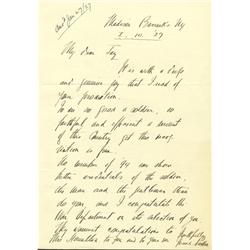 Madison Barracks NY
2. 10. '27
My Dear Fox,
It is with a deep
and genuine joy that I read of
your promotion.
So good a soldier, so
faithful and efficient a servant
of this Country get this recog-
nition is fine.
No member of 94 can show
better credentials of the soldier,
the man and the gentleman than
do you, and I congratulate the
War Department on its selection of you
My warmest congratulations to
to you and to your